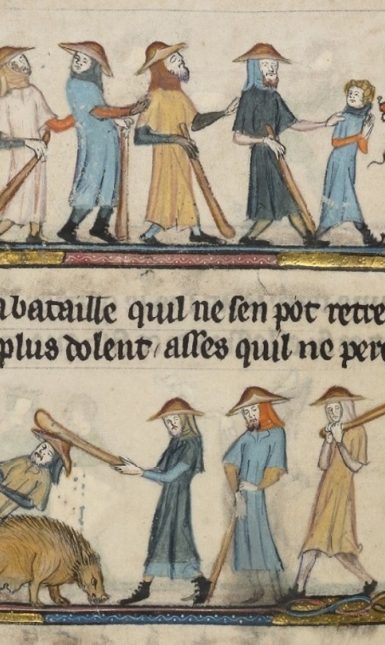 a bataille quil ne sen pot retre
plus dolent / asses quil ne per